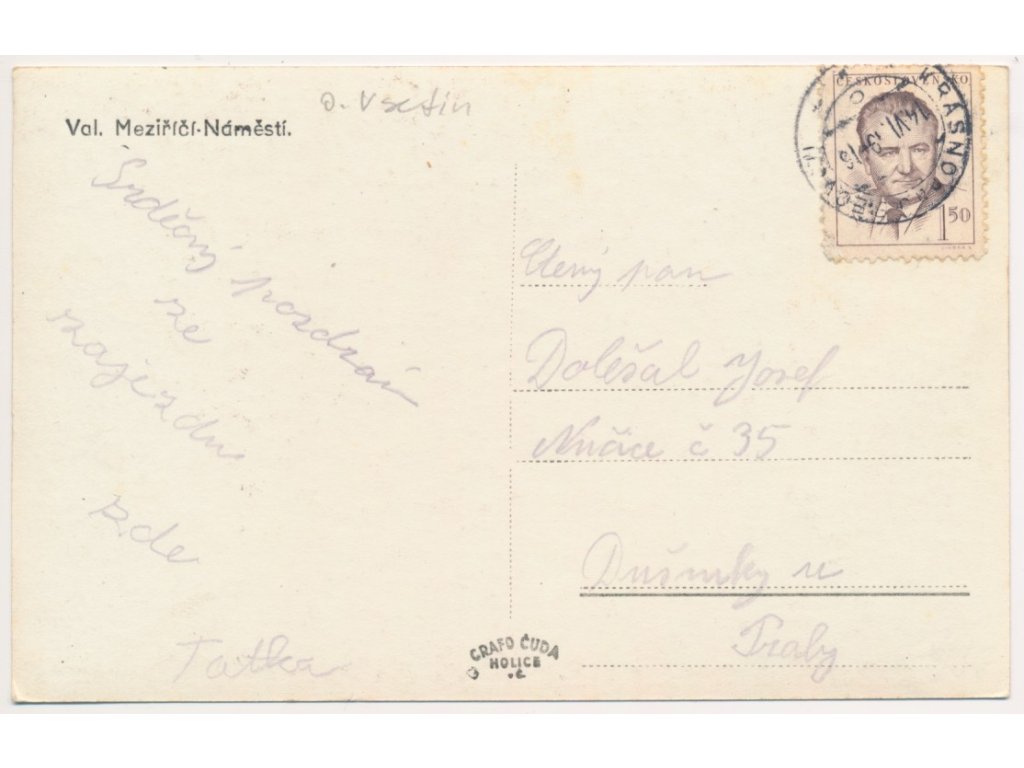 o. Vsetín
Val. Meziříčí-Náměstí.
ČESKOSLOVENSKO
KRÁSNO
1 50
Srdečný pozdrav
ze
zajezdu
zde
Tatka
Ctený pan
Doležal Josef
Nučice č 35
Dušníky u
Prahy
GRAFO ČUDA
HOLICE